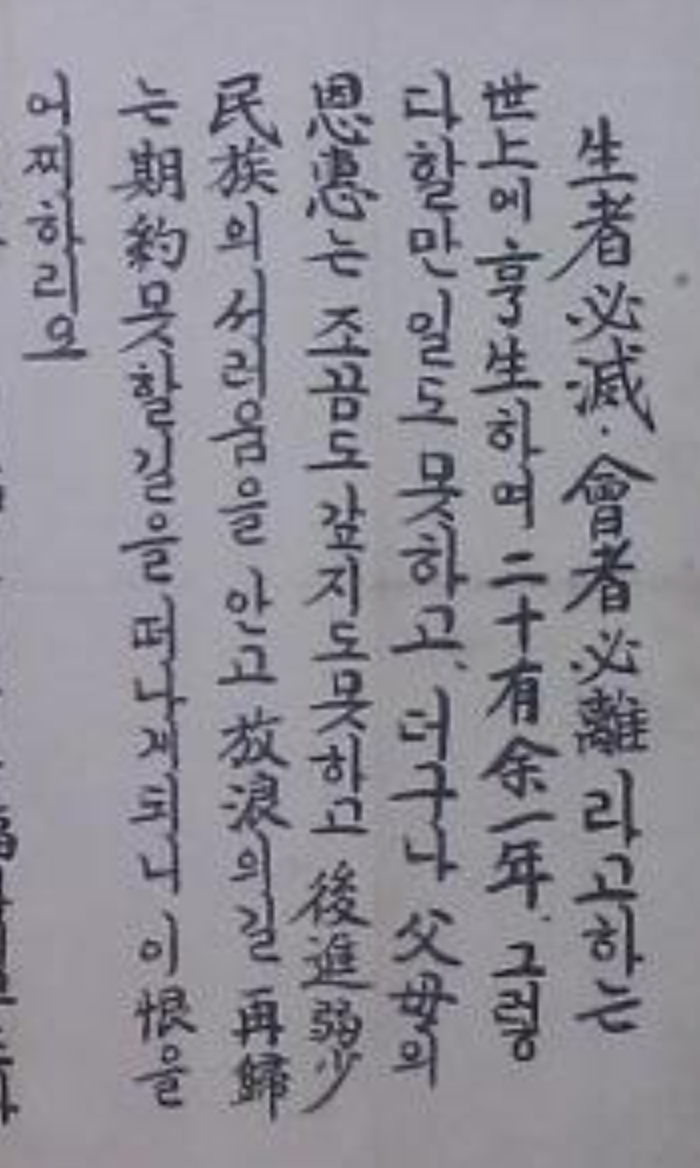 生者必滅·會者必離라고하는
世上에 享生하여 二十有余一年. 그렇
다할만 일도 못하고, 더구나 父母의
恩惠는 조끔도 갚지도못하고 後進弱少
民族의 서러움을 안고 放浪의길 再歸
는 期約못할길을 떠나게되니 이 恨을
어찌하리오